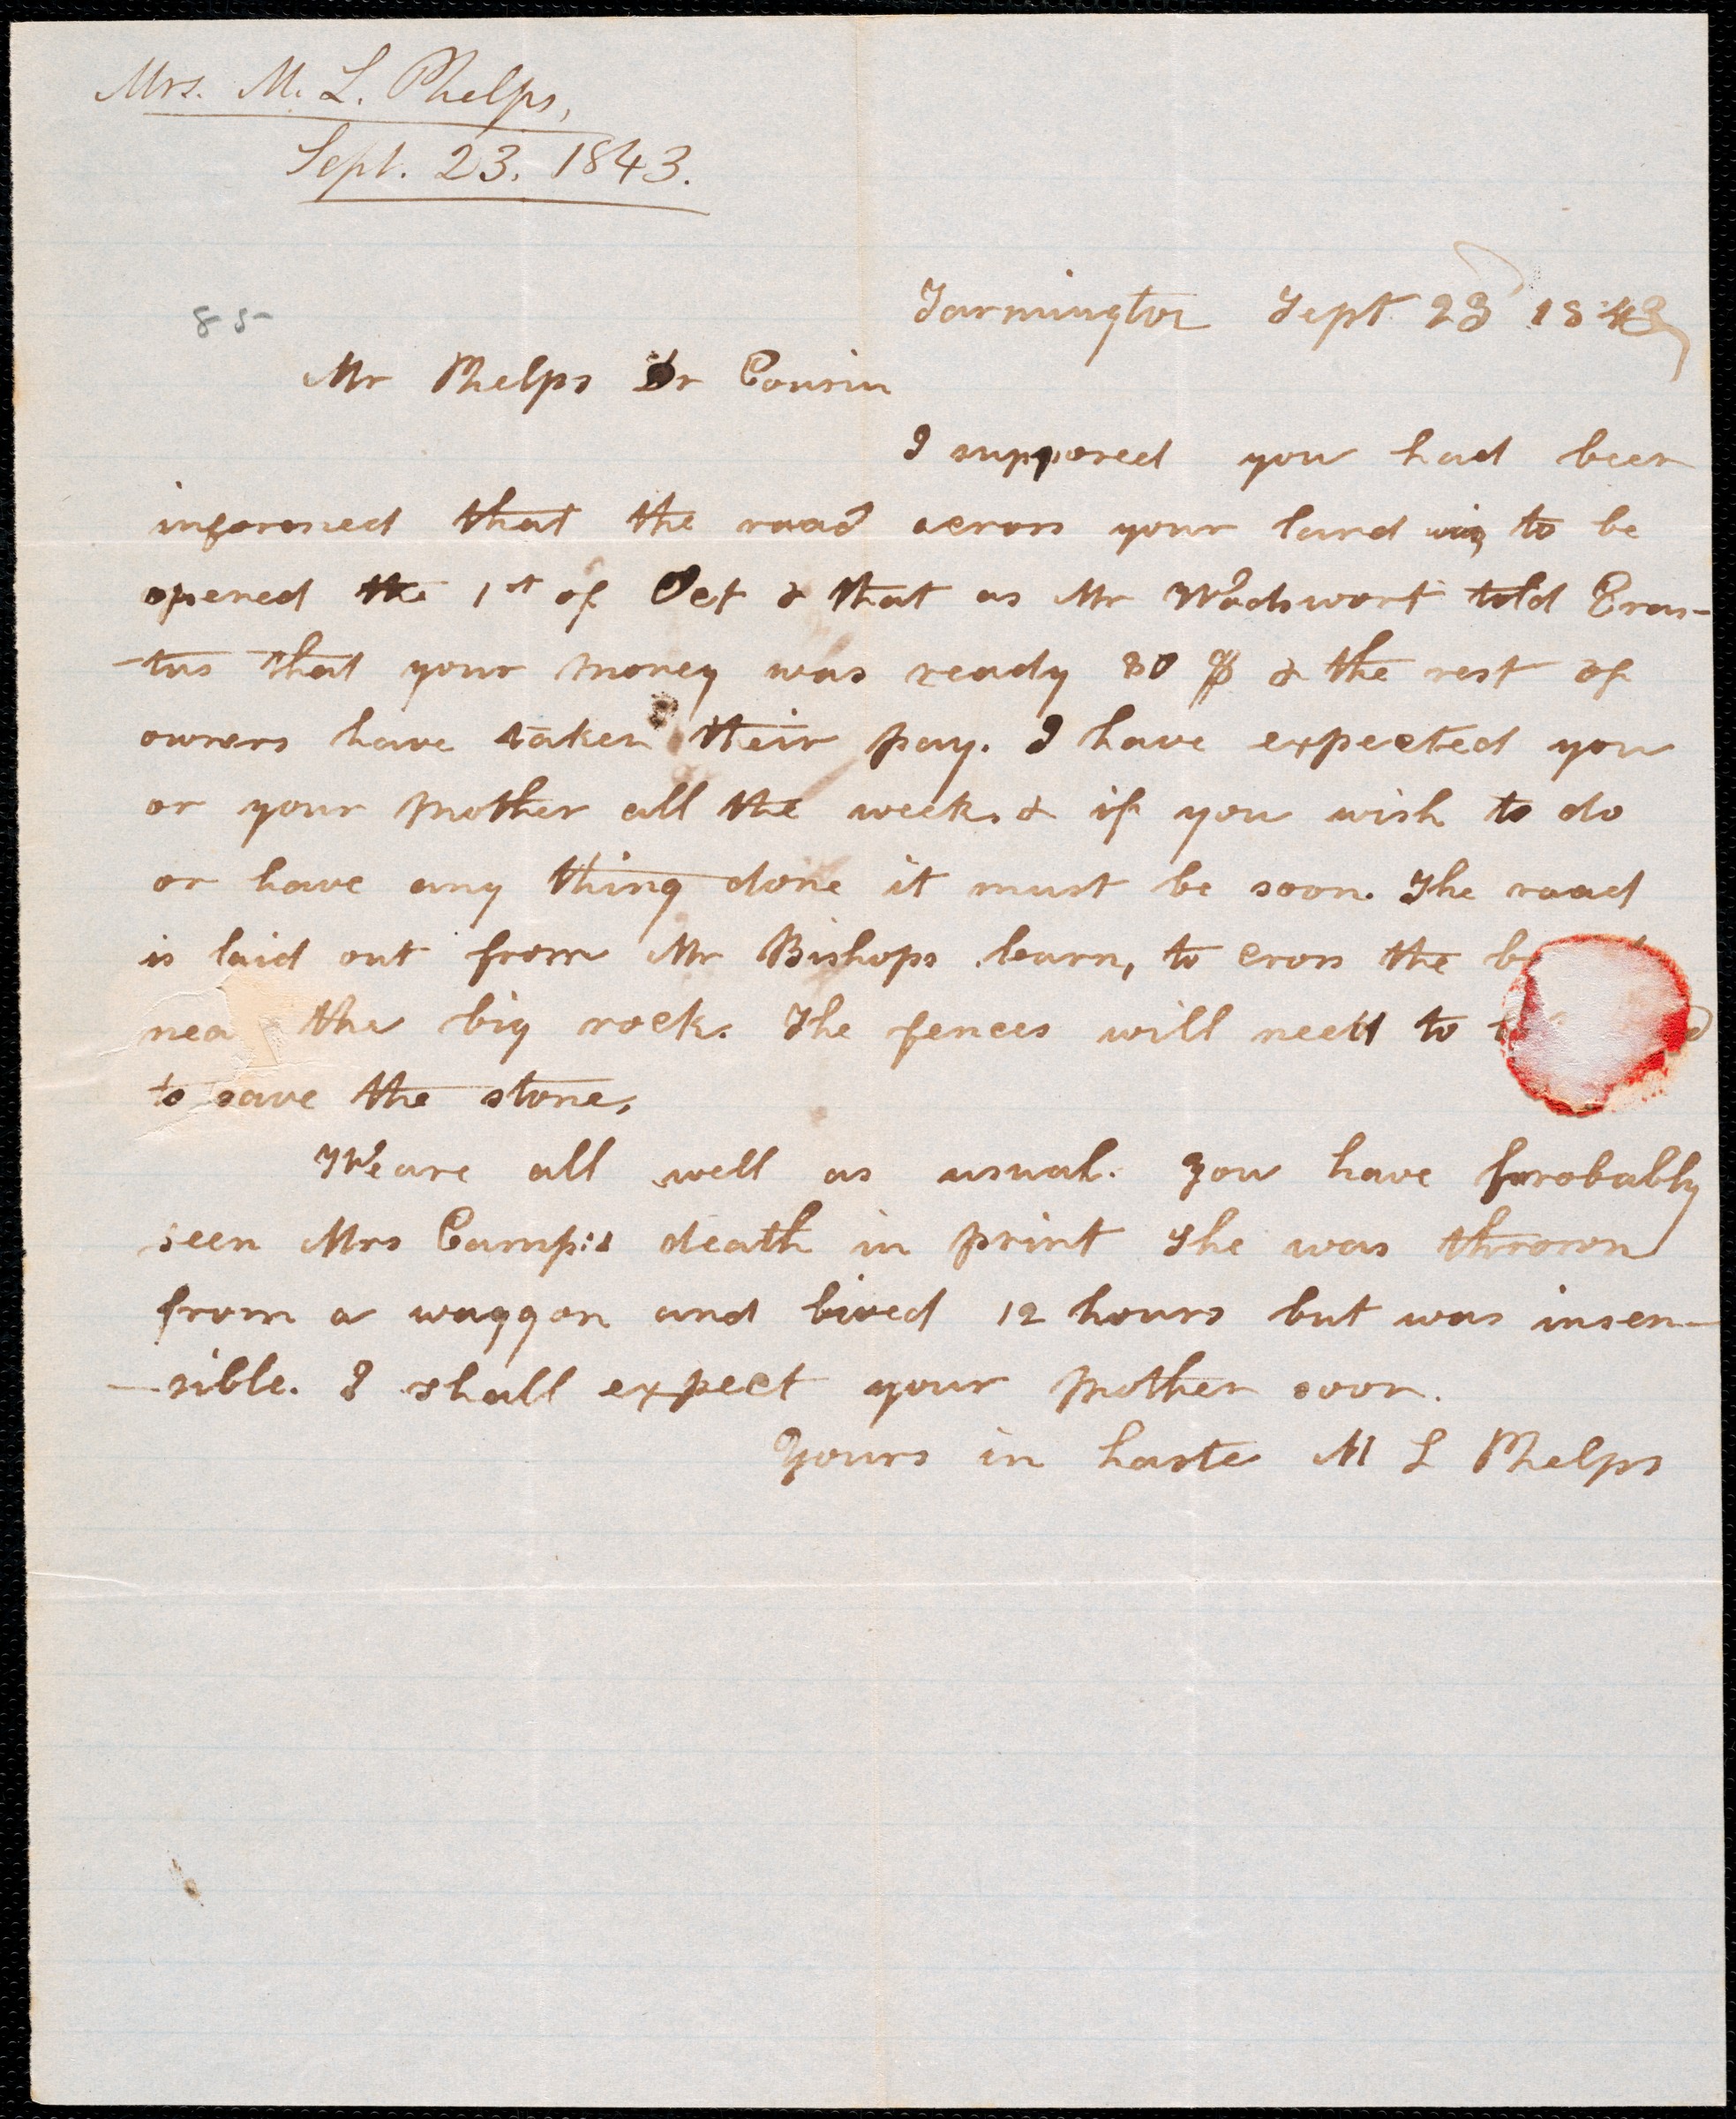 Mrs. M. L. Phelps,
Sept. 23. 1843.
85
Farmington Sept 23 1843
Mr Phelps Dr Cousin
I supposed you had been
informed that the road across your land was to be
opened the 1st of Oct & that as Mr Wadswort told Eras-
-tus that your money was ready 80 $ & the rest of
owners have taken their pay. I have expected you
or your mother all the week. & if you wish to do
or have any thing done it must be soon. The road
is laid out from Mr Bishops barn, to cross the
near the big rock. The fences will need to
to save the stone.
We are all well as usual. You have probably
seen Mrs Camp's death in print She was thrown
from a waggon and lived 12 hours but was insen-
-sible. I shall expect your mother soon.
Yours in haste M L Phelps